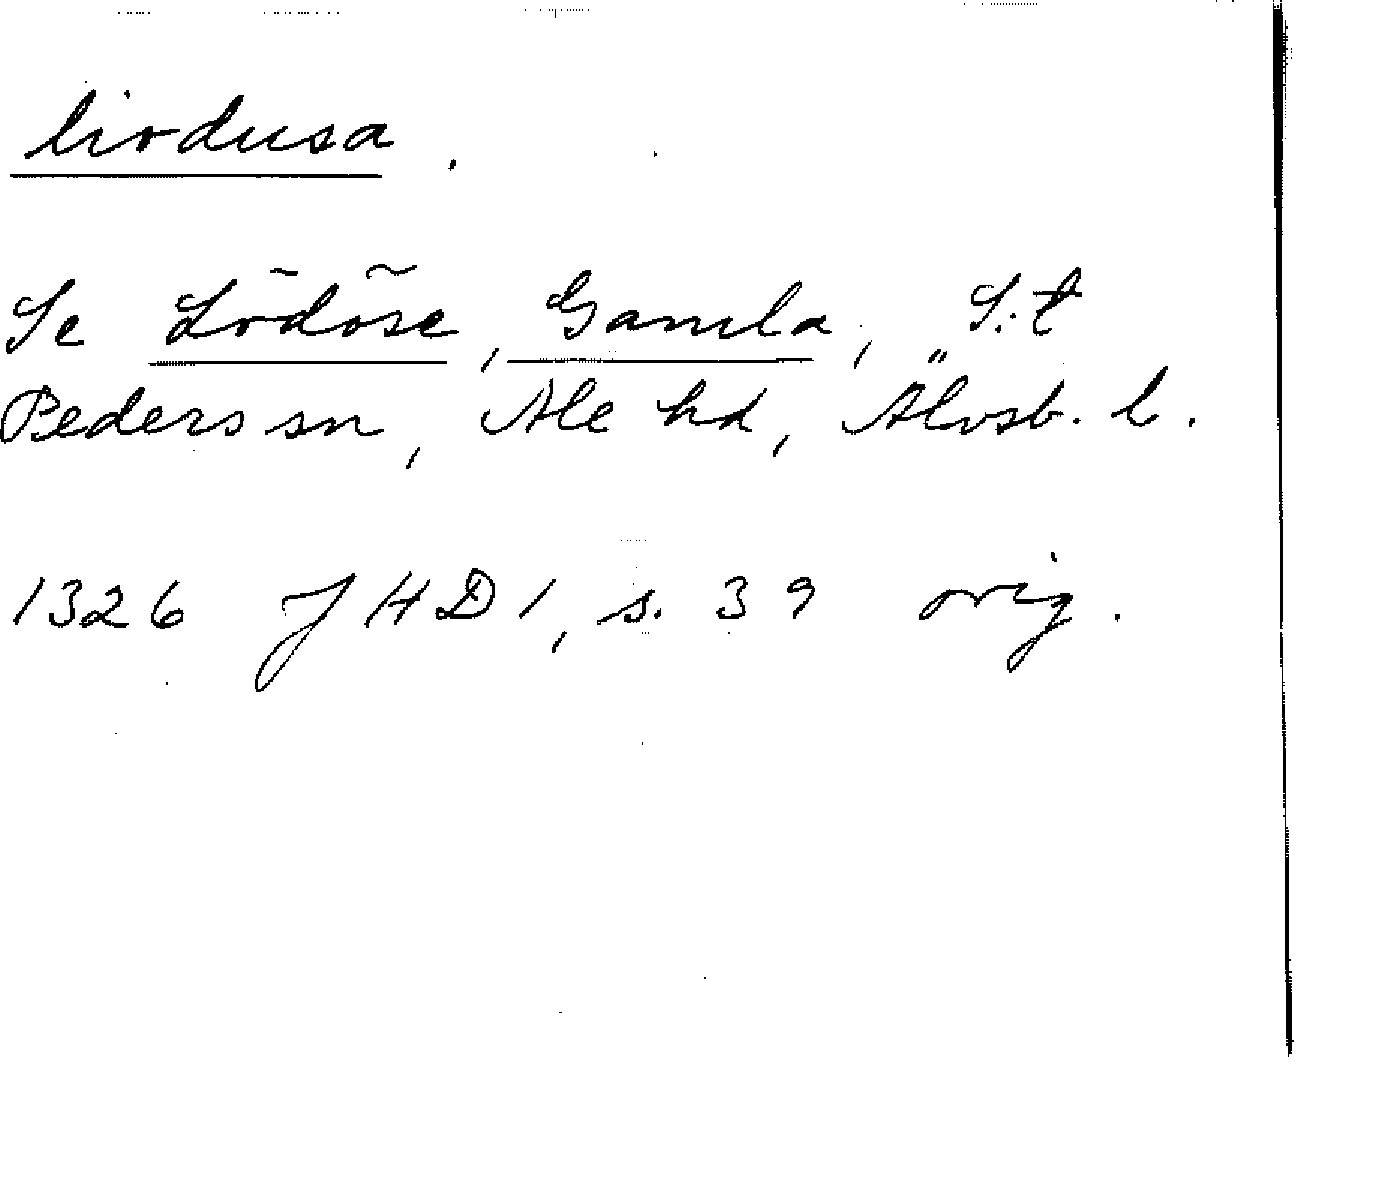 liodusa.
Se Lödöse, Gamla, S:t
Peders sn, Ale hd, Älvsb. l.
1326 JHD 1, s. 39 orig.